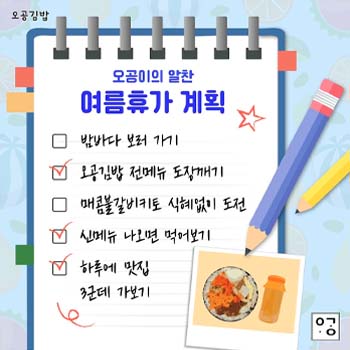 오공김밥
오공이의 알찬
여름휴가 계획
밤바다 보러 가기
오공김밥 전메뉴 도장깨기
매콤불갈비키토 식혜없이 도전
신메뉴 나오면 먹어보기
하루에 맛집
3군데 가보기